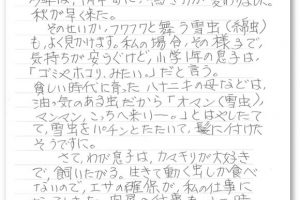 秋が早く来た。
そのせいか、フワフワと舞う雪虫(綿虫)
も、よく見かけます。私の場合、その様まで
気持ちが安らぐけど、小学1年の息子は、
「ゴミやホコリみたい。」だと言う。
貧しい時代に育った ハナニキの母などは、
油っ気のある虫だから「オマン(雪虫)、
マンマン、こっちへ来いー。」とはやしたて
て、雪虫をパチンとたたいて、髪に付けた
そうですに。
さて、わが息子は、カマキリが大好き
で、飼いたがる。生きて動く虫しか食べ
ないので、エサの確保が、私の仕事に